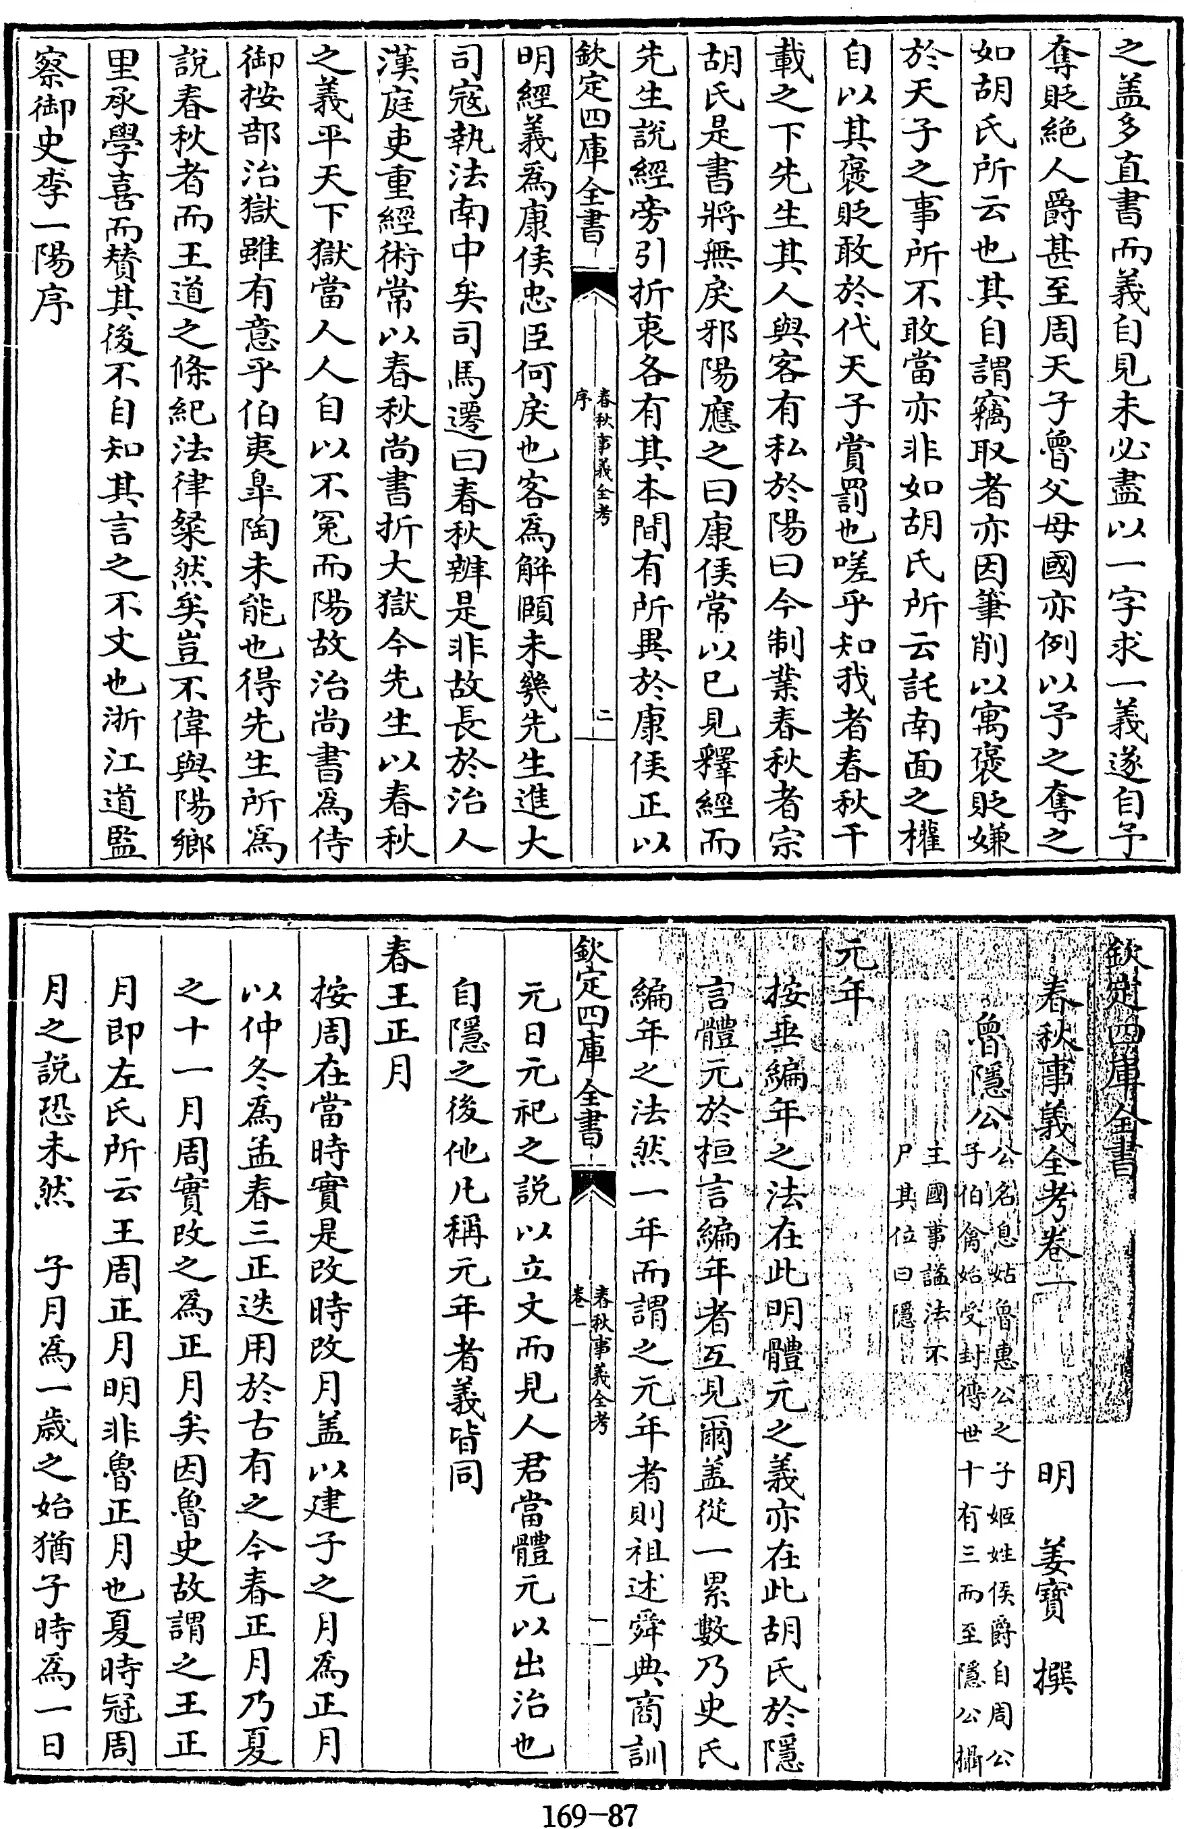 之盖多直書而義自見未必盡以一字求一義遂自予
奪貶絶人爵甚至周天子魯父母國亦例以予之奪之
如胡氏所云也其自謂竊取者亦因筆削以寓褒貶嫌
於天子之事所不敢當亦非如胡氏所云託南面之權
自以其褒貶敢於代天子賞罰也嗟乎知我者春秋千
載之下先生其人與客有私於陽曰今制業春秋者宗
胡氏是書將無戾邪陽應之曰康侯常以已見釋經而
先生說經旁引折衷各有其本間有所異於康侯正以
欽定四庫全書
春秋事義全考
序
二
明經義爲康侯忠臣何戾也客爲解頤未幾先生進大
司寇執法南中矣司馬遷曰春秋辨是非故長於治人
漢庭吏重經術常以春秋尚書折大獄今先生以春秋
之義平天下獄當人人自以不冤而陽故治尚書爲侍
御按部治獄雖有意乎伯夷臯陶未能也得先生所爲
說春秋者而王道之條紀法律粲然矣豈不偉與陽鄉
里承學喜而賛其後不自知其言之不文也浙江道監
察御史李一陽序
欽定四庫全書
春秋事義全考卷一
明 姜寶 撰
魯隱公
公名息姑魯惠公之子姬姓侯爵自周公
子伯禽始受封傳世十有三而至隱公攝
主國事諡法不
尸其位曰隱
元年
按垂編年之法在此明體元之義亦在此胡氏於隱
言體元於桓言編年者互見爾盖從一累數乃史氏
編年之法然一年而謂之元年者則祖述舜典商訓
欽定四庫全書
春秋事義全考
卷一
一
元日元祀之說以立文而見人君當體元以出治也
自隱之後他凡稱元年者義皆同
春王正月
按周在當時實是改時改月盖以建子之月爲正月
以仲冬爲孟春三正迭用於古有之今春正月乃夏
之十一月周實改之爲正月矣因魯史故謂之王正
月即左氏所云王周正月明非魯正月也夏時冠周
月之說恐未然 子月爲一歲之始猶子時爲一日
169-87